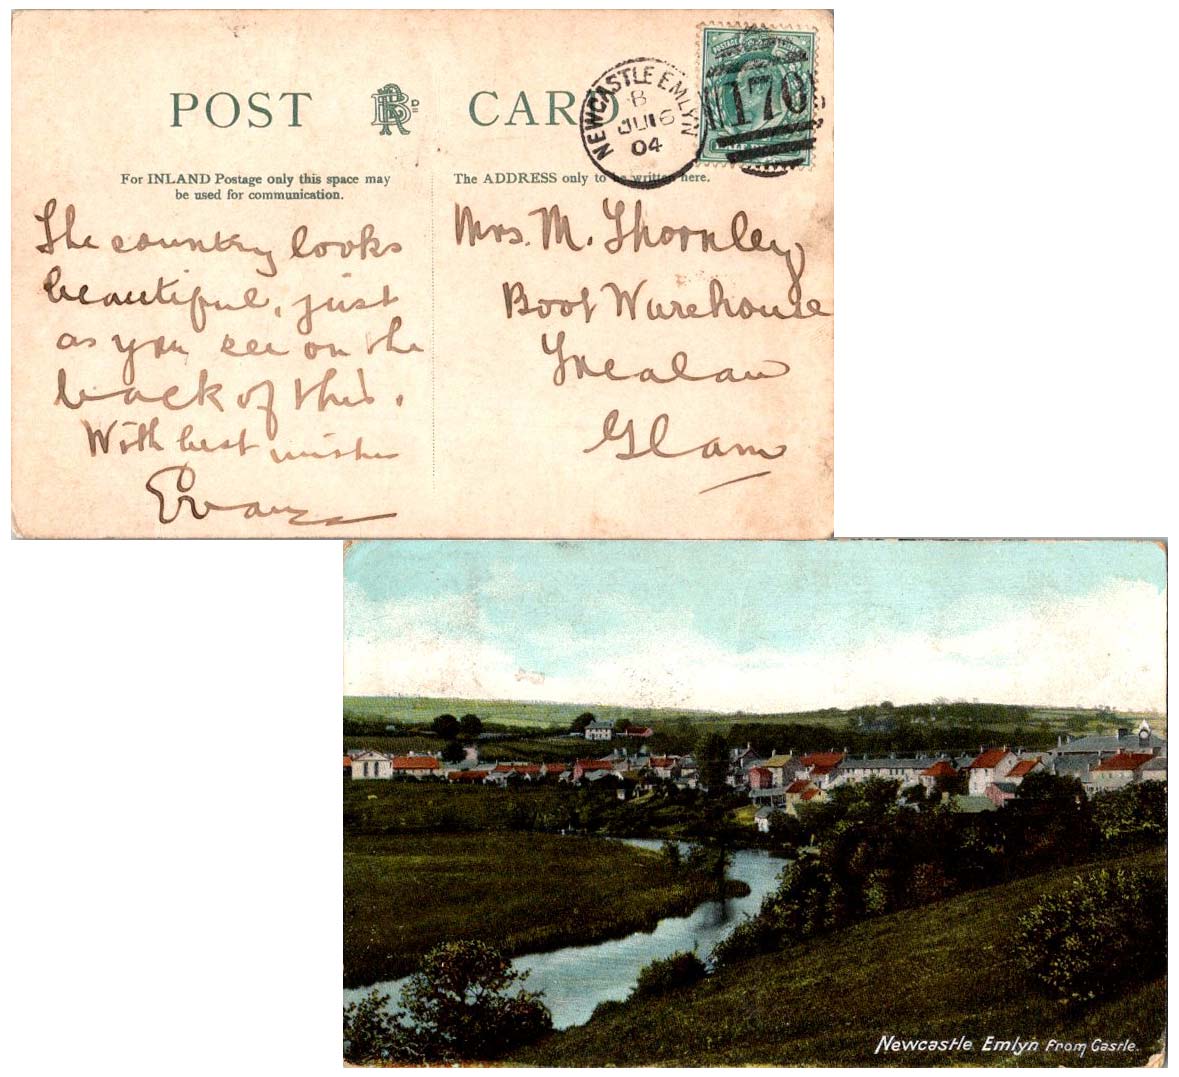 POST CARD
For INLAND Postage only this space may
be used for communication.
The ADDRESS only to be written here.
NEWCASTLE EMLYN
B
JU 6
04
170
The country looks
beautiful, just
as you see on the
back of this.
With best wishes
Evans
Mrs. M. Thornley
Boot Warehouse
Trealaw
Glam
Newcastle Emlyn From Castle.